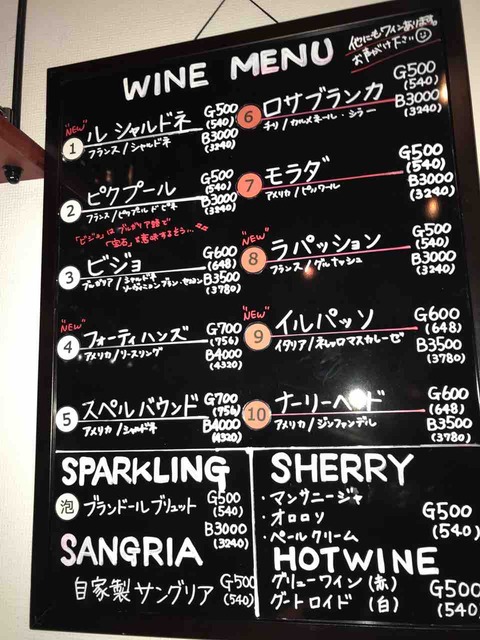 WINE MENU
他にもワインあります。
お声がけ下さい
"NEW"
1 ル シャルドネ G500
(540)
フランス/シャルドネ B3000
(3240)
2 ピクプール G500
(540)
フランス/ピクプール ド ピネ B3000
(3240)
「ビジョ」はブルガリア語で
「宝石」を意味するそう…
3 ビジョ G600
(648)
ブルガリア/シャルドネ B3500
ソーヴィニヨンブラン・
(3780)
"NEW"
4 フォーティハンズ G700
(756)
アメリカ/リースリング B4000
(4320)
5 スペルバウンド G700
(756)
アメリカ/シャルドネ B4000
(4320)
6 ロサブランカ G500
(540)
チリ/カルメネール・シラー B3000
(3240)
7 モラダ G500
(540)
アメリカ/ B3000
(3240)
"NEW"
8 ラパッション G500
(540)
フランス/グルナッシュ B3000
(3240)
"NEW"
9 イルパッソ G600
(648)
イタリア/ネレッロマスカレーゼ B3500
(3780)
10 ナーリーヘッド G600
(648)
アメリカ/ジンファンデル B3500
(3780)
SPARKLING
泡 ブランドールブリュット G500
(540)
B3000
(3240)
SANGRIA
自家製サングリア G500
(540)
SHERRY
・マンサニージャ
・オロロソ G500
・ペールクリーム (540)
HOTWINE
グリューワイン(赤) G500
グートロイド (白) (540)